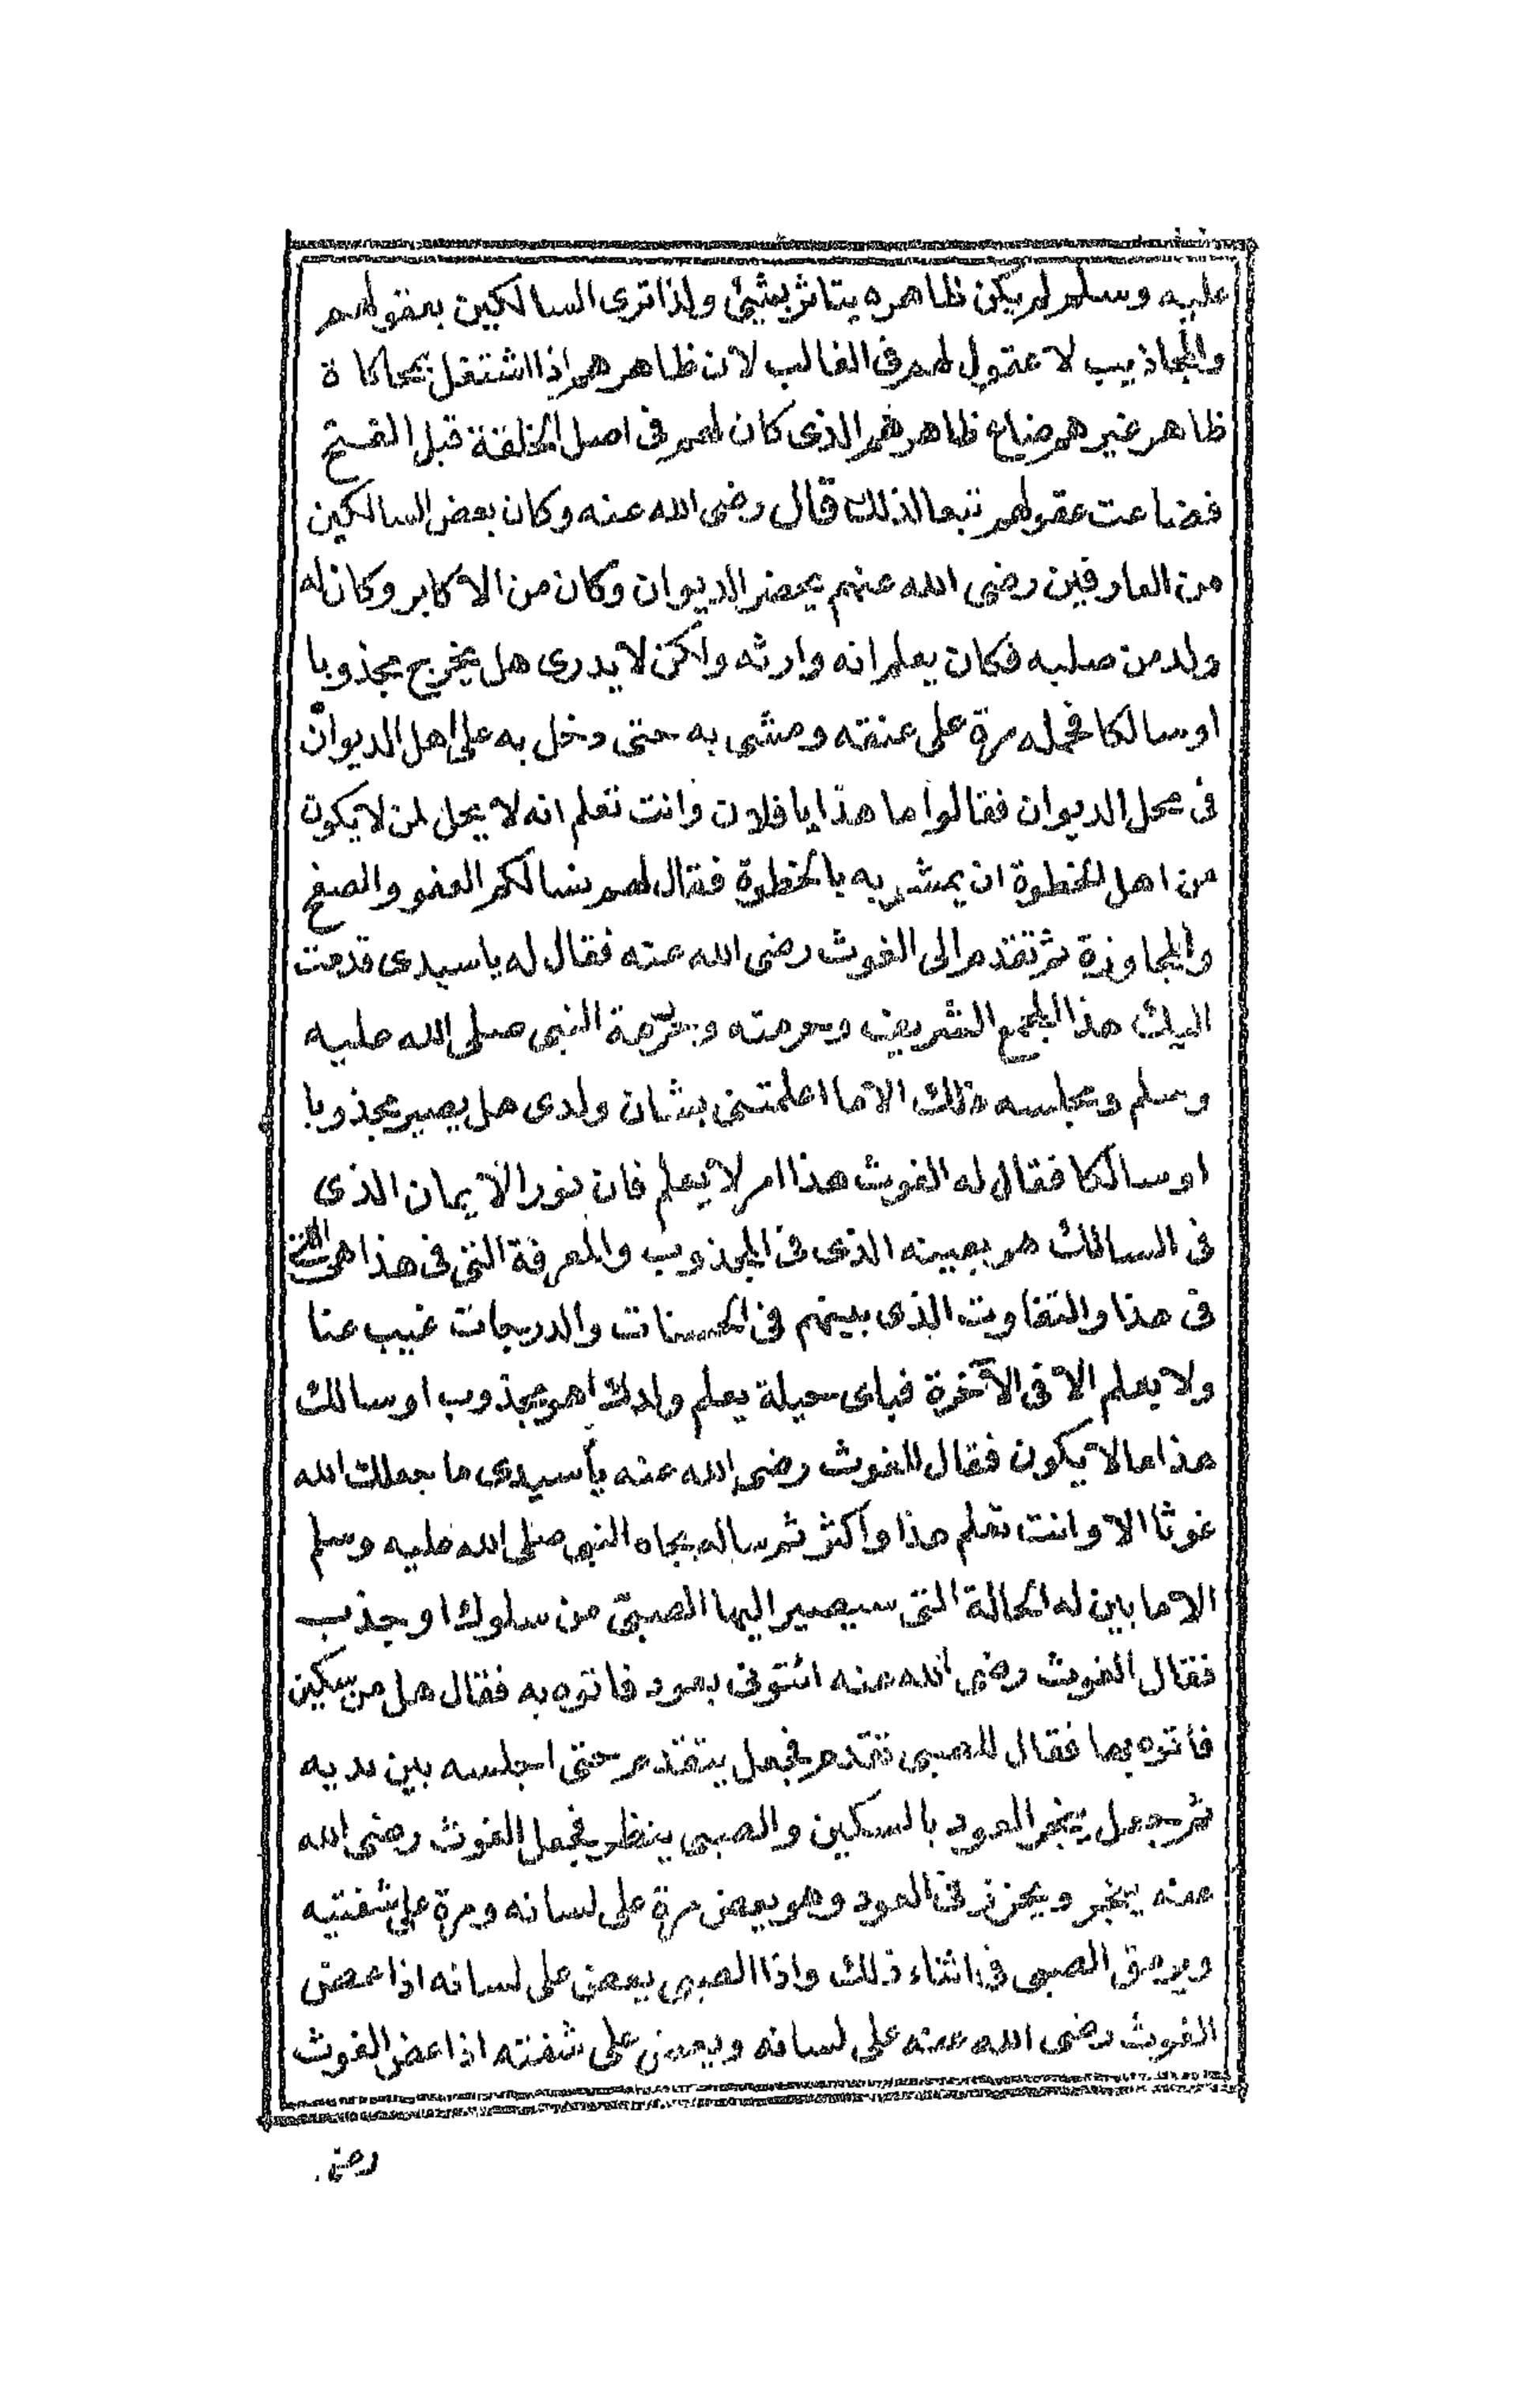 عليه وسلم لم يكن ظاهره يتاثر بشئ ولذا ترى السالكين بعقولهم
والمجاذيب لا عقول لهم فى الغالب لان ظاهرهم اذا اشتغل بمحاكاة
ظاهر غيرهم ضاع ظاهرهم الذى كان لهم فى اصل الخلقة قبل الفتح
فضاعت عقولهم تبعا لذلك قال رضى الله عنه وكان بعض السالكين
من العارفين رضى الله عنهم يحضر الديوان وكان من الاكابر وكان له
ولد من صلبه فكان يعلم انه وارثه ولكن لا يدرى هل يخرج مجذوبا
او سالكا فحمله مرة على عنقه ومشى به حتى دخل به على اهل الديوان
فى محل الديوان فقالوا ما هذا يا فلان وانت تعلم انه لا يحل لمن لا يكون
من اهل الخطوة ان يمشى به بالخطوة فقال لهم نسالكم العفو والصفح
والمجاوزة ثم تقدم الى الغوث رضى الله عنه فقال له يا سيدى قدمت
اليك هذا الجمع الشريف وحرمته وبحرمة النبى صلى الله عليه
وسلم ومجلسه ذلك الا ما اعلمتنى بشان ولدى هل يصير مجذوبا
او سالكا فقال له الغوث هذا امر لا يعلم فان نور الايمان الذى
فى السالك هو بعينه الذى فى المجذوب والمعرفة التى فى هذا هى التى
فى هذا والتفاوت الذى بينهم فى الحسنات والدرجات غيب عنا
ولا يعلم الا فى الآخرة فباى حيلة يعلم ولدك اهو مجذوب او سالك
هذا ما لا يكون فقال للغوث رضى الله عنه يا سيدى ما جعلك الله
غوثا الا وانت تعلم هذا واكثر ثم ساله بجاه النبى صلى الله عليه وسلم
الا ما بين له الحالة التى سيصير اليها الصبى من سلوك او جذب
فقال الغوث رضى الله عنه ائتونى بعود فاتوه به فقال هل من سكين
فأتوه بها فقال للصبى تقدم فجعل يتقدم حتى اجلسه بين يديه
ثم جعل ينجر العود بالسكين والصبى ينظر فجعل الغوث رضى الله
عنه ينجر ويحزز فى العود وهو يعض مرة على لسانه ومرة على شفتيه
ويرمق الصبى فى اثناء ذلك واذا الصبى يعض على لسانه اذا عض
الغوث رضى الله عنه على لسانه ويعض على شفته اذا عض الغوث
رضى